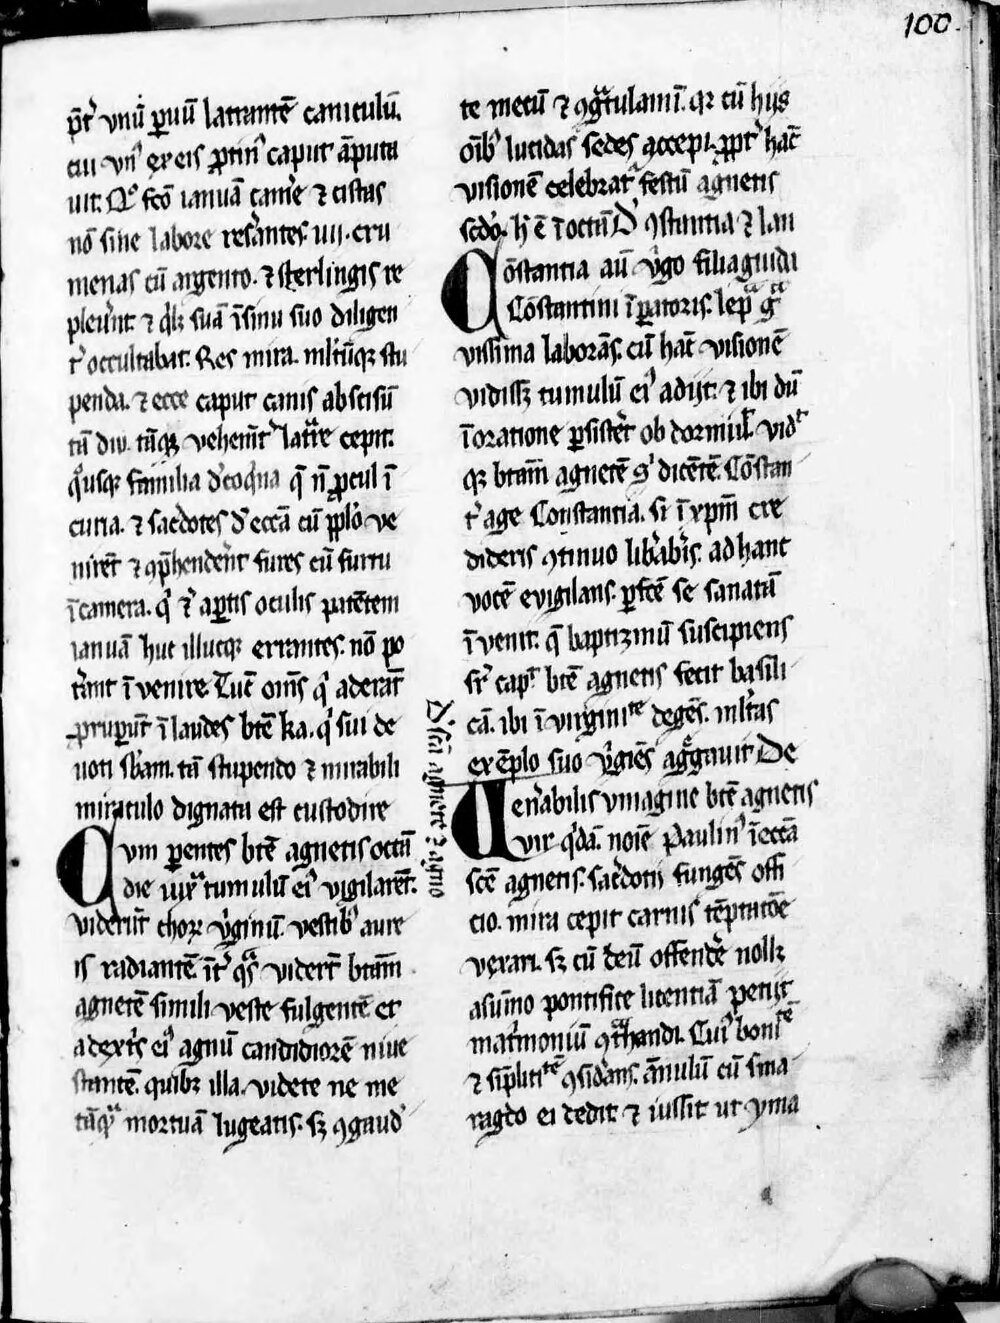 100.
p̄t᷑ vnū ꝑuū latrantē caniculū.
cui vn᷑ ex eis ꝓtin᷑ caput āputa
uit. Qo fcō ianuā cam̄e ⁊ cistas
nō sine labore res̄antes. uij. cru
menas cū argento. ⁊ sterlingis re
plew̄nt. ⁊ q̄lꝫ suā ī sinu suo diligen
t᷑ occultabat. Res mira. ml̄tūqꝫ stu
penda. ⁊ ecce caput canis abscisū
tā diu. tāqꝫ vehem̄t᷑ lat̄re cepit.
q̊usqꝫ familia d᷑ coq̄na q̄ n̄ ꝓcul ī
curia. ⁊ sac̄dotes d᷑ eccā cū pplō ve
nirēt ⁊ ꝯp̄hender̄t fures cū furtu
ī camera. q̄ ⁊ ap̄tis oculis patētem
ianuā huc illucqꝫ errantes. nō po
t̄ant ī venire. Tūc om̄s q᷑ aderāt
ꝓrupūt ī laudes btē ka. q᷑ sui de
uoti sb̄am. tā stupendo ⁊ mirabili
miraculo dignata est custodire
Cum ꝑentes btē agnetis octā
die iuxᷓ tumulū ei᷑ vigilarēt.
viderūt choꝝ v̄ginū. vestib᷑ aure
is radiantē īt᷑ q̄s viderūt btām̄
agnetē simili veste fulgentē et
a dext̄s ei᷑ agnū candidiorē niue
stantē. quibꝫ illa. videte ne me
tāqᷓ mortuā lugeatis. sꝫ ꝯgaud᷑
te mecū ⁊ ꝯgᷓtulamī. qꝛ cū hijs
oīb᷑ lucidas sedes accepi. ꝓpt᷑ hāc
visionē celebrat᷑ festū agnetis
scdo. h᷑ ē ī octā D᷑ ꝯstantia ⁊ lau
Cōstantia aū v̄go filia guidā
Cōstantini īꝑatoris. lepᷓ gᷓ
vissima laborās. cū hāc visionē
vidissꝫ tumulū ei᷑ adijt. ⁊ ibi dū
ī oratione ꝑsistēt ob dormiuit vidt
qꝫ btām̄ agnetē s᷑ dicētē. Cōstan
t᷑ age Constantia. si ī xpm̄ cre
dideris ꝯtinuo libābis. ad hanc
vocē evigilans. ꝑfcē se sanatā
ī venit. q̄ baptizmū suscipiens
sr᷑ capt btē agnetis fecit basili
cā. ibi ī virginite degēs. ml̄tas
exēplo suo v̄giēs aggᷓuit De
Venabilis vmagine btē agnetis
vir q̄dā. noīe Paulin᷑ ī eccā
scē agnetis. sac̄dotij fungēs offi
cio. mira cepit carnis tēptatōe
vexari. sꝫ cū deū offende nollꝫ
a sūmo pontifice licentiā petijt
mat̄moniū ꝯtᷓhandi. Cui᷑ bonitē
⁊ siplicitē ꝯsid̄ans. ānulū cū sma
ragdo ei dedit ⁊ iussit ut yma
D᷑ scā agnete ⁊ agno